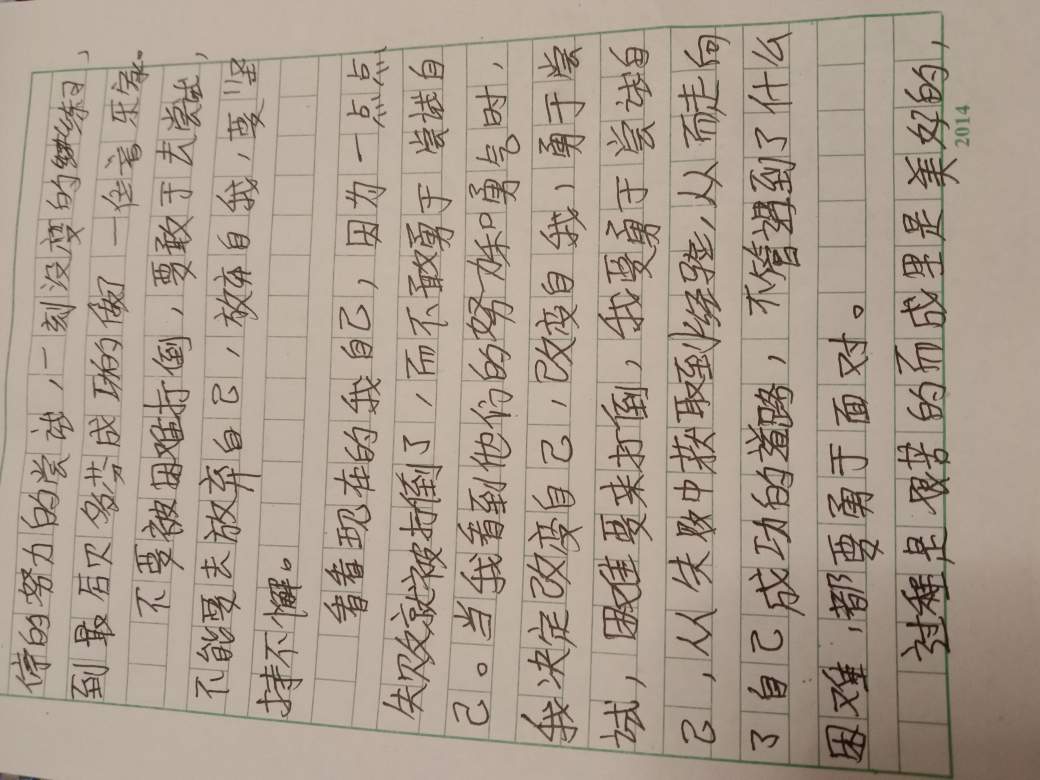 停的努力的尝试，一刻没变的练习，
到最后贝多芬成功的做了一位音乐家。
不要被困难打倒，要敢于去尝试，
不能要去放弃自己，放弃自我，要坚
持不懈。
看看现在的我自己，因为一点点
失败就被打倒了，而不敢勇于尝试自
己。当我看到他们的努力和勇气时，
我决定改变自己，改变自我，勇于尝
试，困难要来打倒，我要勇于尝试自
己，从失败中获取到经验，从而走向
了自己成功的道路，不管遇到了什么
困难，都要勇于面对。
过程是艰苦的而成果是美好的，
2014